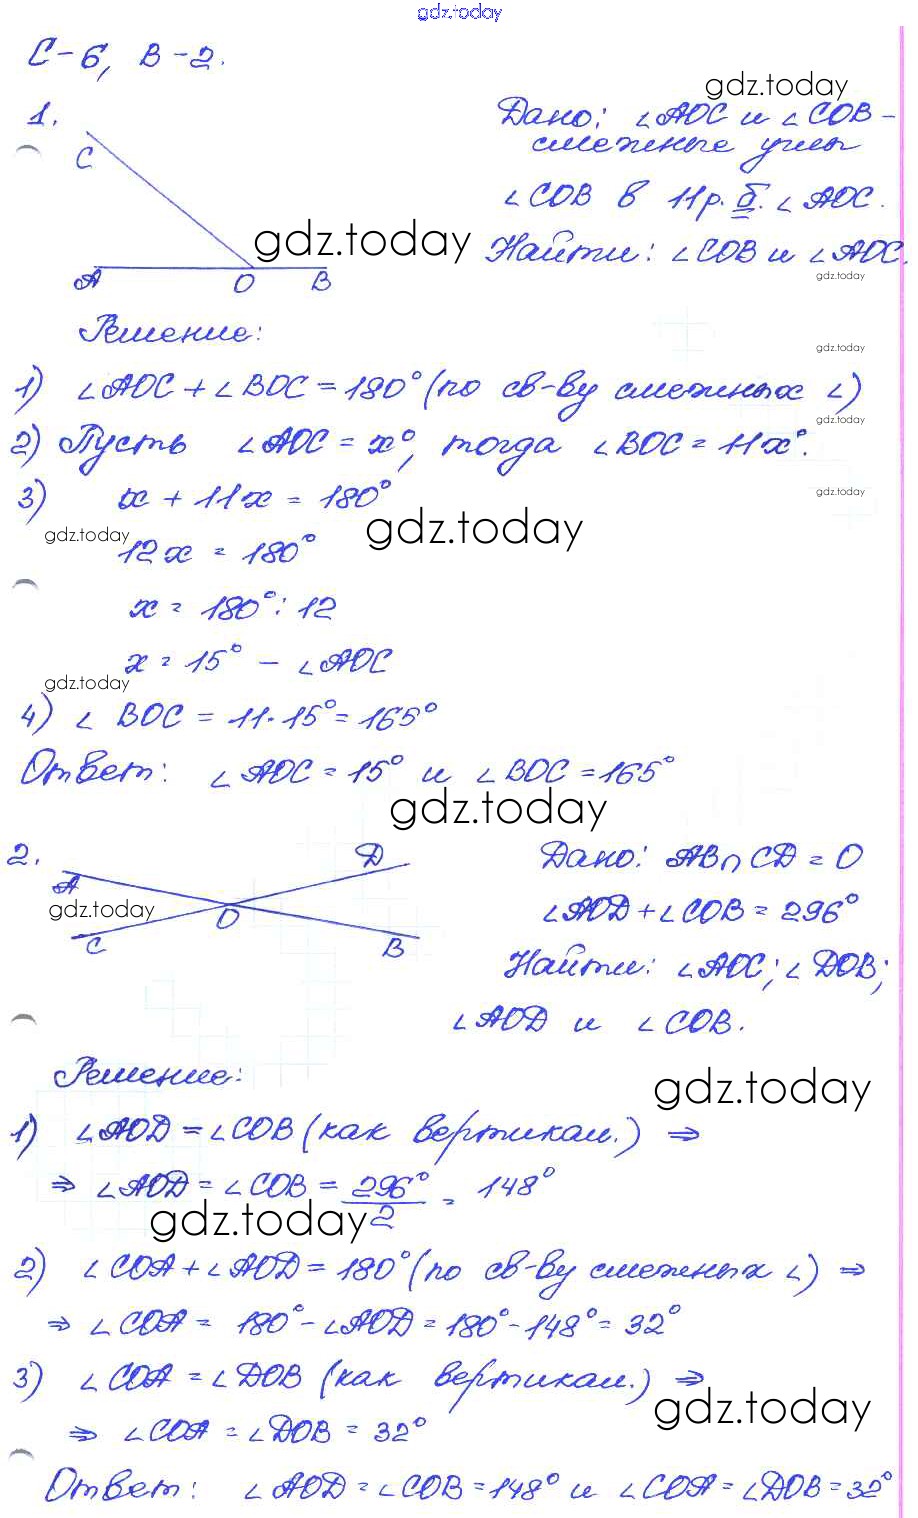 gdz.today
С-6, В-2.
gdz.today
1.
Дано: ∠AOC и ∠COB -
смежные углы
C
∠COB в 11 р. б. ∠AOC.
gdz.today
Найти: ∠COB и ∠AOC.
A O B
gdz.today
Решение:
gdz.today
1) ∠AOC + ∠BOC = 180° (по св-ву смежных ∠)
gdz.today
2) Пусть ∠AOC = x°, тогда ∠BOC = 11x°.
3) x + 11x = 180°
gdz.today
gdz.today
gdz.today
12x = 180°
x = 180° : 12
x = 15° - ∠AOC
gdz.today
4) ∠BOC = 11·15° = 165°
Ответ: ∠AOC = 15° и ∠BOC = 165°
gdz.today
2.
Дано: AB∩CD = O
A D
gdz.today
∠AOD + ∠COB = 296°
O
C B
Найти: ∠AOC; ∠DOB;
∠AOD и ∠COB.
Решение:
gdz.today
1) ∠AOD = ∠COB (как вертикал.) ⇒
⇒ ∠AOD = ∠COB = 296°/2 = 148°
gdz.today
2) ∠COA + ∠AOD = 180° (по св-ву смежных ∠) ⇒
⇒ ∠COA = 180° - ∠AOD = 180° - 148° = 32°
3) ∠COA = ∠DOB (как вертикал.) ⇒
gdz.today
⇒ ∠COA = ∠DOB = 32°
Ответ: ∠AOD = ∠COB = 148° и ∠COA = ∠DOB = 32°